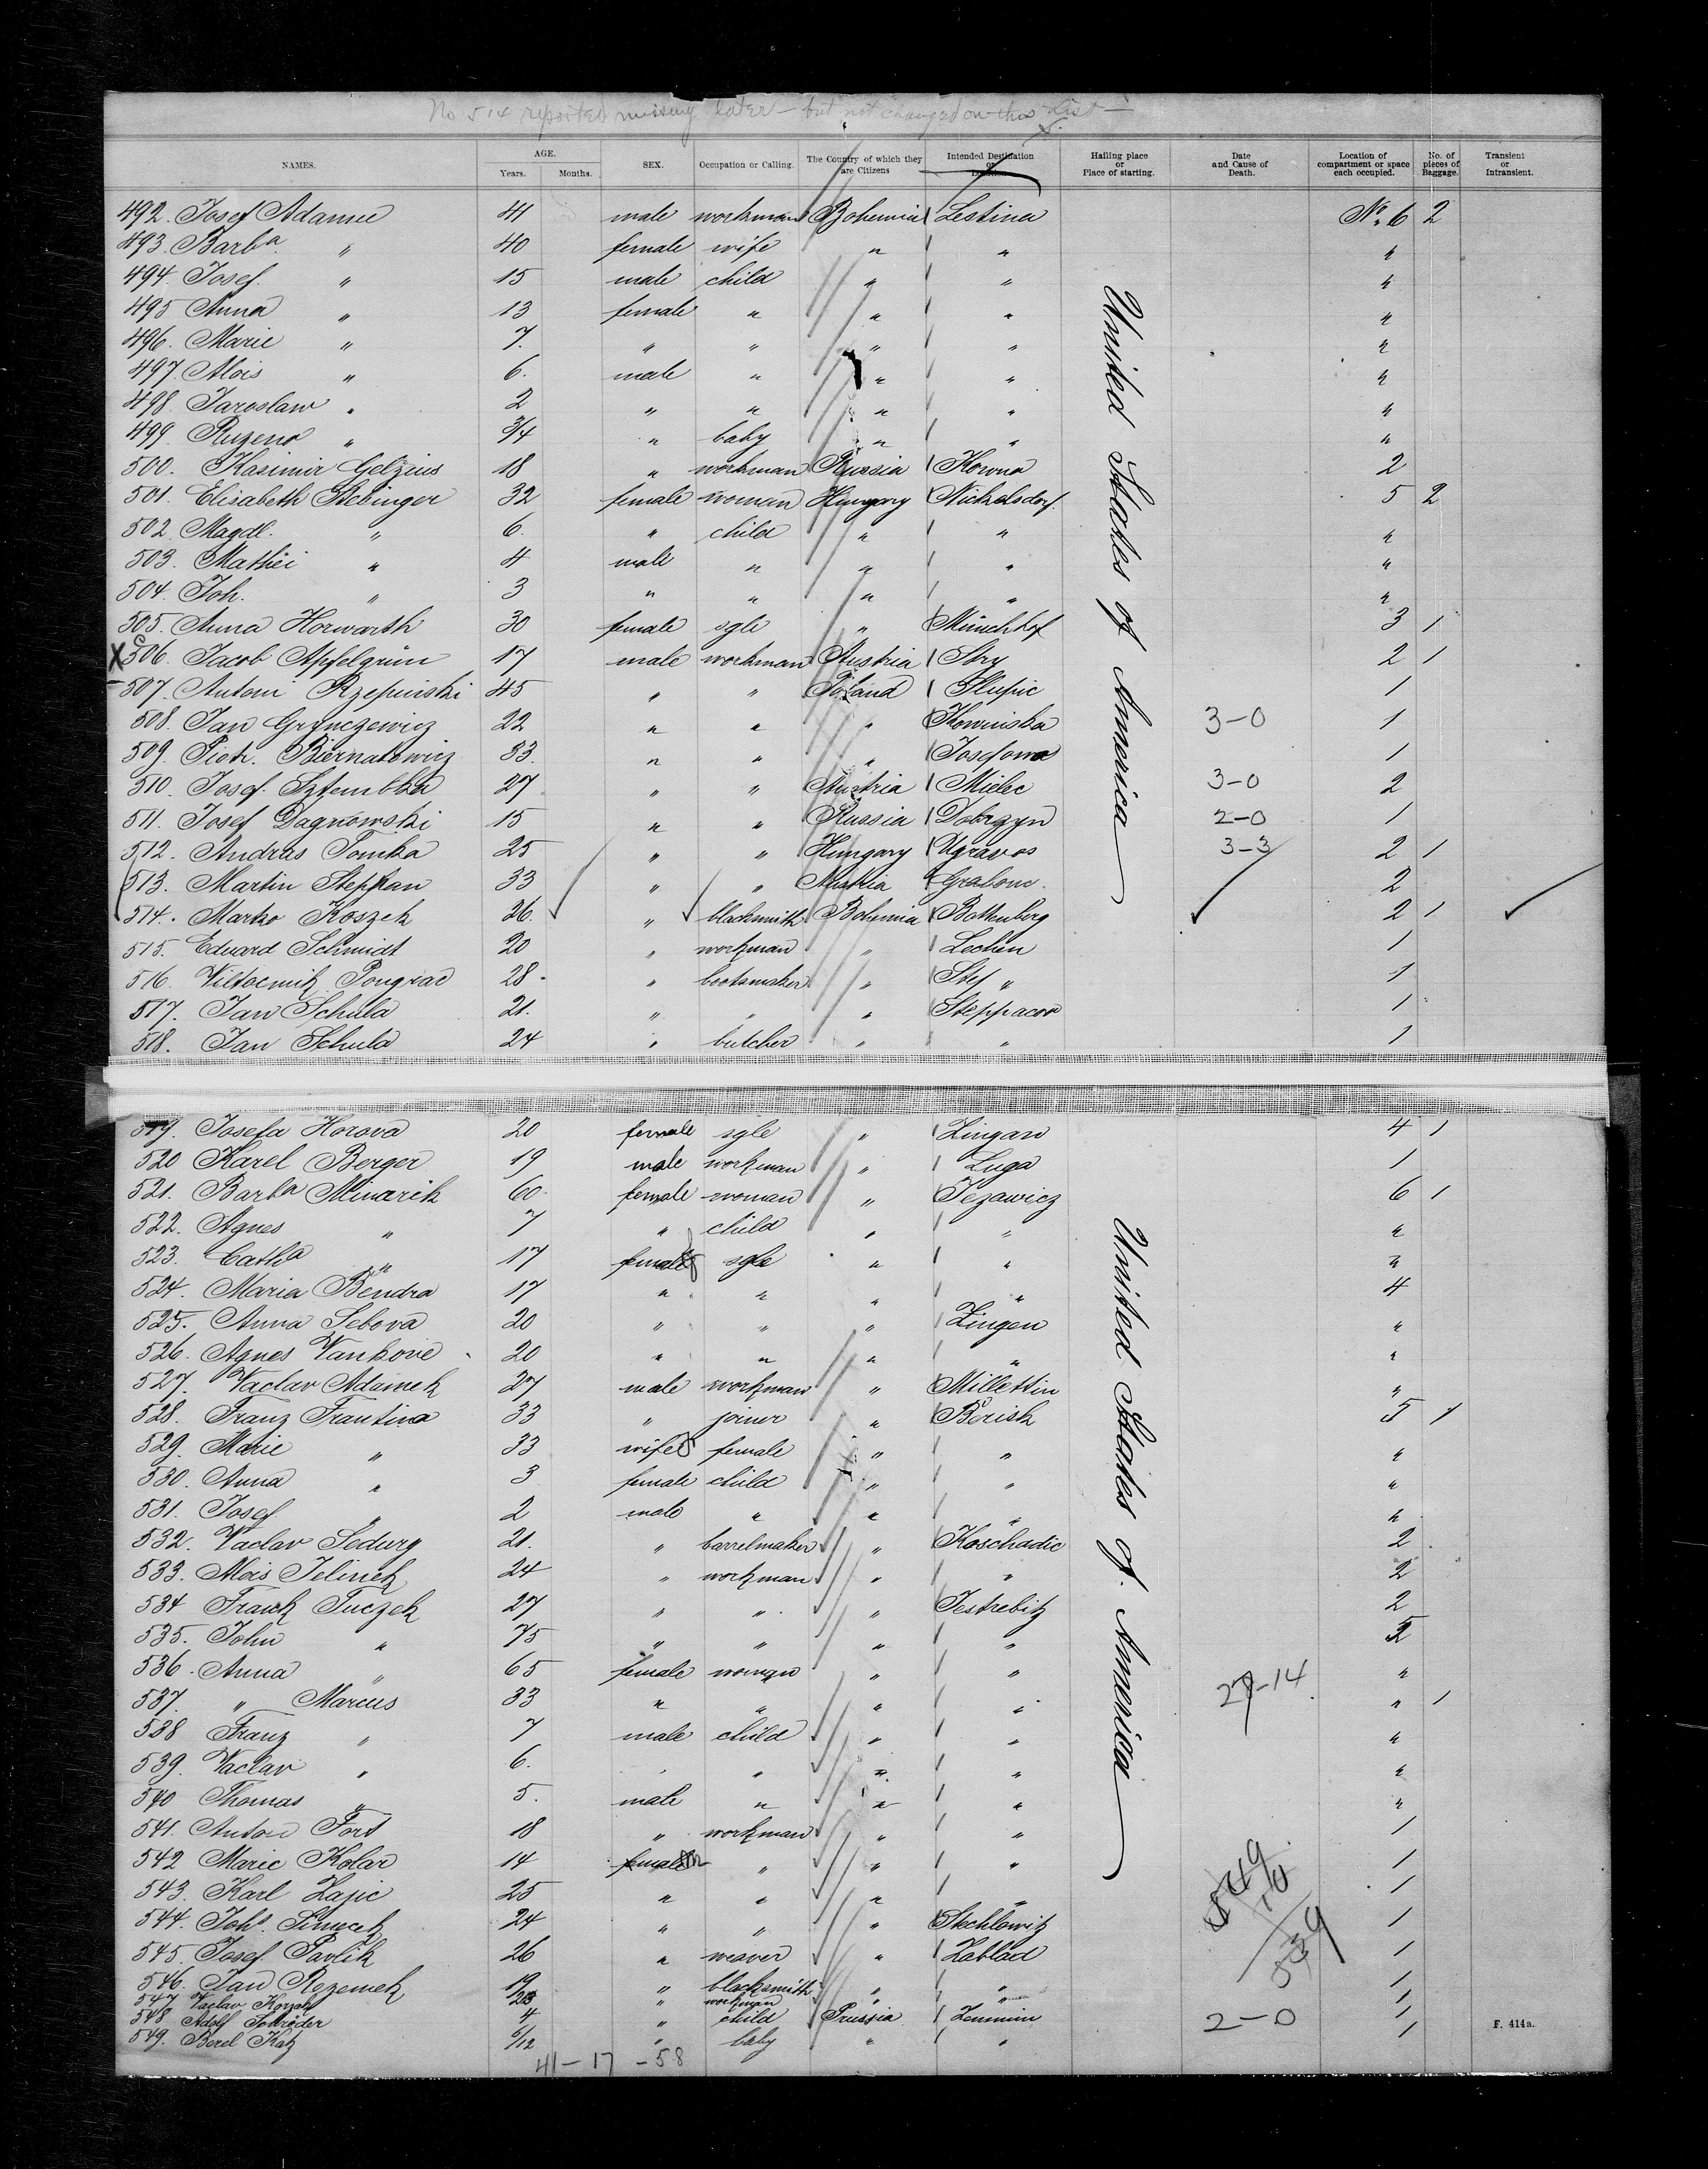 No 514 reported missing later – but not changed on this List –
NAMES. AGE. Years. Months. SEX. Occupation or Calling. The Country of which they are Citizens Intended Destination or Location Hailing place or Place of starting. Date and Cause of Death. Location of compartment or space each occupied. No. of pieces of Baggage. Transient or Intransient.
492. Josef Adamec 41 male workman Bohemia Lestina No. 6 2
493. Barba " 40 female wife " " "
494. Josef " 15 male child " " "
495 Anna " 13 female " " " "
496. Marie " 7. " " " " "
497. Alois " 6. male " " " "
498. Jaroslaw " 2 " " " " "
499. Ruzena " 3/4 " baby " " "
500. Kasimir Gelzius 18 " workman Russia Kowna 2
501. Elisabeth Stebinger 32 female woman Hungary Nickelsdorf. 5 2
502. Magdl. " 6. " child " " "
503. Mathei " 4 male " " " "
504. Joh. " 3 " " " " "
505. Anna Horwarth 30 female sgle " Münchhof 3 1
X 506. Jacob Apfelgrün 17 male workman Austria Stry 2 1
507. Antoni Rzepinski 45 " " Poland Slupic 1
508. Jan Grynczewicz 22 " " " Kowniska 3-0 1
509. Piotr. Biernatowicz 33. " " " Josefowa 1
510. Josef Sztembka 27 " " Austria Mielec 3-0 2
511. Josef Dagnowski 15 " " Russia Dobrzyn 2-0 1
512. Andras Tomka 25 " " Hungary Ugravos 3-3 2 1
513. Martin Steppan 33 " " Austria Grabow. 2
514. Marko Koszek 26. " blacksmith Bohemia Bottenberg 2 1
515. Eduard Schmidt 20 " workman " Lechen 1
516. Pongrac 28. " bootsmaker " Stef " 1
517. Jan Schula 21. " " " Steppacov 1
518. Jan Schula 24 " butcher " " 1
United States of America
519. Josefa Horova 20 female sgle " Zingan 4 1
520 Karel Berger 19 male workman " Luga 1
521. Barba Minarik 60. female woman " Jezawicz 6 1
522. Agnes " 7 " child " " "
523. Catha " 17 female sgle " " "
524. Maria Bendra 17 " " " " 4
525. Anna Sebova 20 " " " Zingen "
526. Agnes Vankovie 20 " " " " "
527. Vaclav Adamek 27 male workman " Millettin "
528. Franz Frantina 33 " joiner " Berish 5 1
529. Marie " 33 wife female " " "
530. Anna " 3 female child " " "
531. Josef " 2 male " " " "
532. Vaclav Sedurg 21. " barrelmaker " Koschadic 2
533. Alois Jelinek 24 " workman " " 2
534 Frank Tuczek 27 " " " Jestrebitz 2
535. John " 75 " " " " 2
536. Anna " 65 female woman " " "
537. " Marcus 33 " " " " 27-14 " 1
538 Franz " 7 male child " " "
539. Vaclav " 6. " " " "
540 Thomas " 5. male " " " "
541. Anton Fort 18 " workman " " 1
542 Marie Kolar 14 female " " " 1
543. Karl Zajic 25 " " " " 1
544. Johs. Simecek 24 " " " Stechlowitz 1
545. Josef Pavlik 26 " weaver " Zablad 1
546. Jan Rezemek 19 " blacksmith " " 1
547 Vaclav Korzak 23 " workman " " 1
548 Adolf Schröder 4 " child Prussia Zemmin 2-0 1
549. Berel Katz 5/12 " baby " " 1
United States of America
549
10
539
F. 414a.
41-17-58